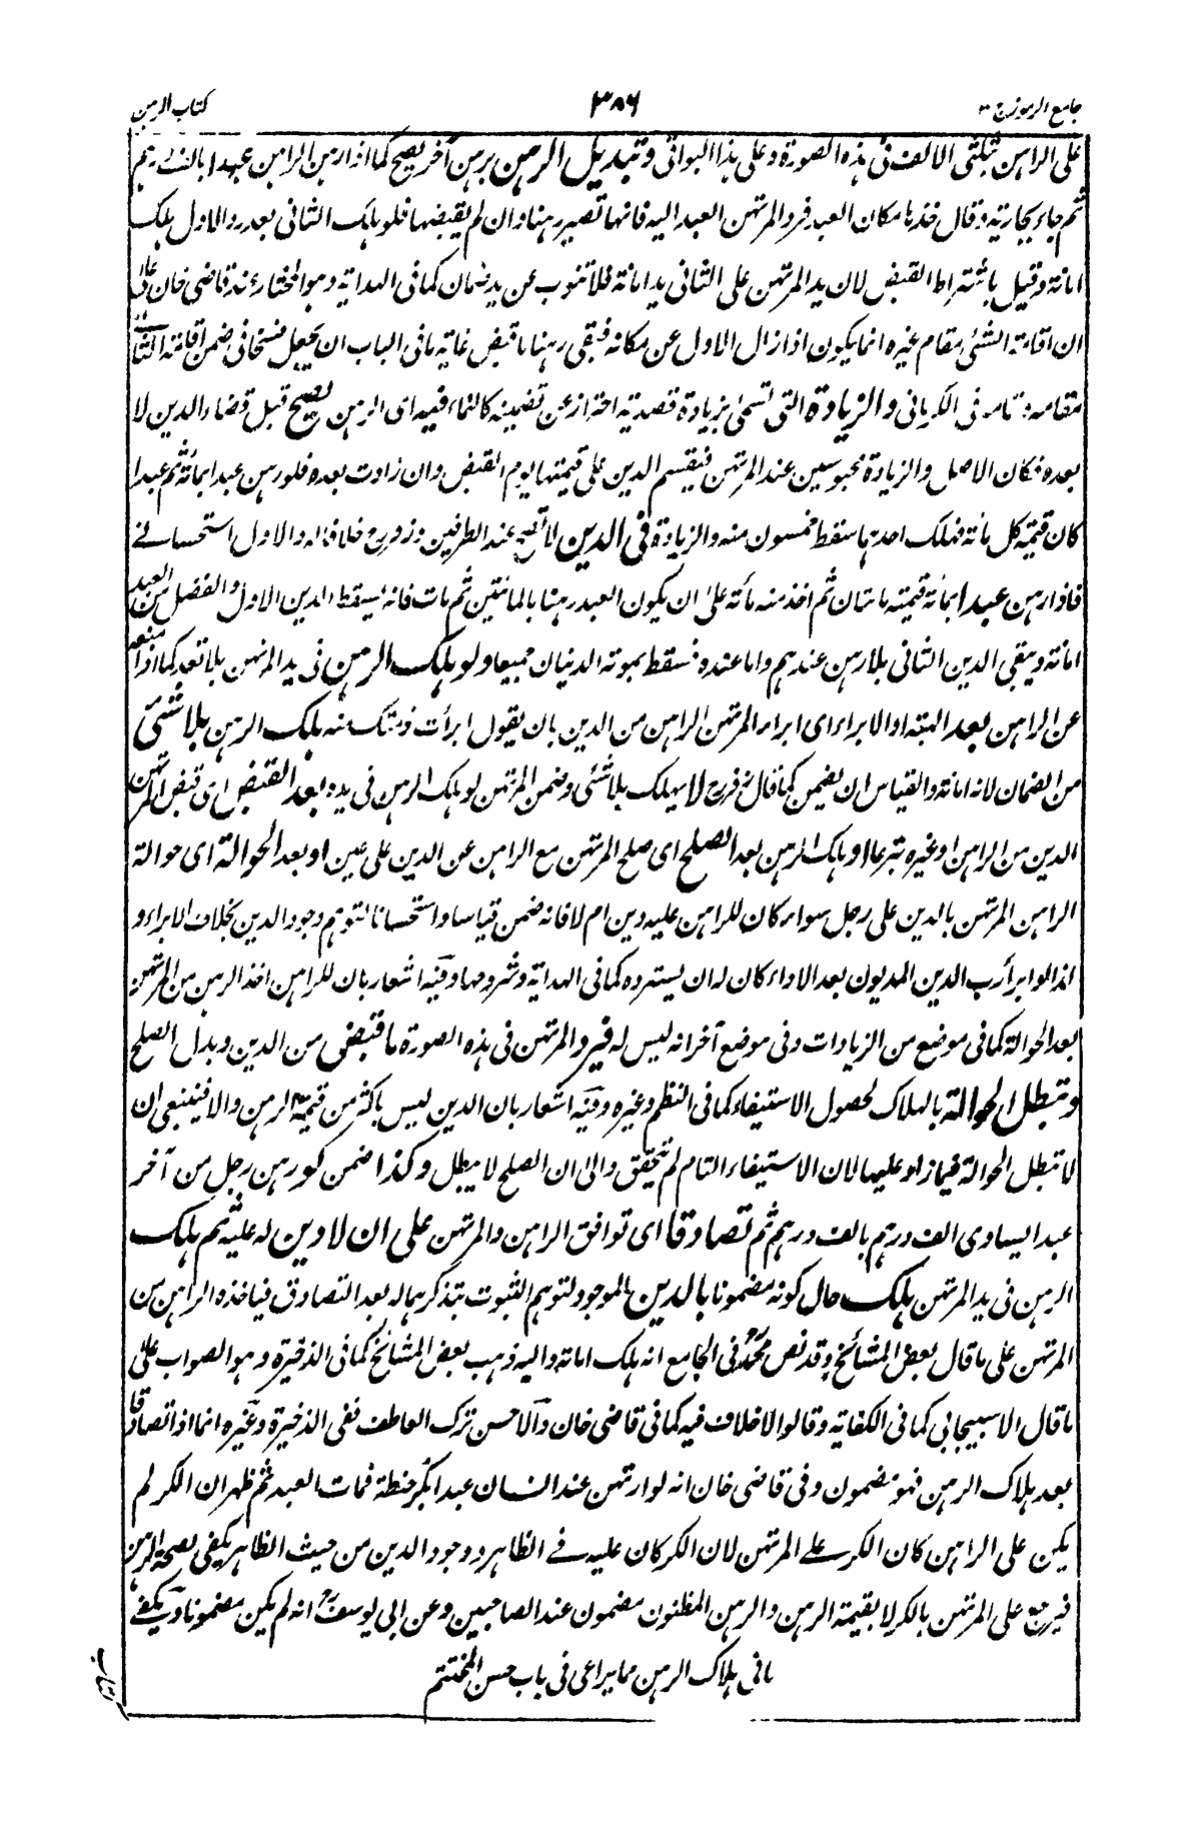 جامع الرموز ج ٣
٣٨٦
كتاب الرهن
على الراهن بثلثي الالف فى هذه الصورة وعلى هذا البواقى وتبديل الرهن برهن آخر يصح كما اذا رهن الراهن عبدا بالف درهم
ثم جاء بجارية وقال خذها مكان العبد فرد المرتهن العبد اليه فانها تصير رهنا وان لم يقبضها فلو هلك الثانى بعد رد الاول هلك
امانة وقيل باشتراط القبض لان يد المرتهن على الثانى يد امانة فلا تنوب عن يد ضمان كما فى الهداية وهو المختار عند قاضى خان على
ان اقامة الشئ مقام غيره انما يكون اذا زال الاول عن مكانه فبقى رهنا ما قبض غاية ما فى الباب ان يجعل فسخا فى ضمن اقامة الثانى
مقامه تامه فى الكرمانى والزيادة التى تسمى بزيادة قصدية احتراز عن ضمنية كالنماء فيه اى الرهن يصح قبل قضاء الدين لا
بعده فكان الاصل والزيادة محبوسين عند المرتهن فيقسم الدين على قيمتها يوم القبض وان زادت بعده فلو رهن عبدا بمائة ثم عبدا
كان قيمة كل مائة فهلك احدهما سقط خمسون منه والزيادة فى الدين لا تصح عند الطرفين وزفر رح خلافا له والاول استحسانى
فاذا رهن عبدا بمائة قيمته مائتان ثم اخذ منه مأة على ان يكون العبد رهنا بالمائتين ثم مات فانه يسقط الدين الاول والفضل من العبد
امانة ويبقى الدين الثانى بلا رهن عندهم واما عنده فسقط بموته الدينان جميعا ولو هلك الرهن فى يد المرتهن بلا تعد كما اذا منعه
عن الراهن بعد الهبة او الابراء اى ابراء المرتهن الراهن من الدين بان يقول ابرأت ذمتك منه هلك الرهن بلا شئ
من الضمان لانه امانة والقياس ان يضمن كما قال زفر رح لا يهلك بلا شئ وضمن المرتهن لو هلك الرهن فى يده بعد القبض اى قبض المرتهن
الدين من الراهن او غيره تبرعا او هلك الرهن بعد الصلح اى صلح المرتهن مع الراهن عن الدين على عين او بعد الحوالة اى حوالة
الراهن المرتهن بالدين على رجل سواء كان للراهن عليه دين ام لا فانه ضمن قياسا واستحسانا لتوهم وجود الدين بخلاف الابراء و
لذا لو ابرأ رب الدين المديون بعد الاداء كان له ان يسترده كما فى الهداية وشروحها وفيه اشعار بان للراهن اخذ الرهن من المرتهن
بعد الحوالة كما فى موضع من الزيادات وفى موضع آخر انه ليس له فيرد المرتهن فى هذه الصورة ما قبض من الدين وبدل الصلح
وتبطل الحوالة بالهلاك لحصول الاستيفاء كما فى النظم وغيره وفيه اشعار بان الدين ليس باكثر من قيمة الرهن والا فينبغى ان
لا تبطل الحوالة فيما زاد عليها لان الاستيفاء التام لم يتحقق والى ان الصلح لا يبطل وكذا ضمن لو رهن رجل من آخر
عبدا يساوى الف درهم بالف درهم ثم تصادقا اى توافق الراهن والمرتهن على ان لا دين له عليه ثم هلك
الرهن فى يد المرتهن هلك حال كونه مضمونا بالدين الموجود لتوهم الثبوت بتذكرهما له بعد التصادق فياخذه الراهن من
المرتهن على ما قال بعض المشائخ وقد نص محمد رح فى الجامع انه هلك امانة واليه ذهب بعض المشائخ كما فى الذخيرة وهو الصواب على
ما قال الاسبيجابى كما فى الكفاية وقالوا لا خلاف فيه كما فى قاضى خان والاحسن ترك العاطف ففى الذخيرة وغيره انما اذا تصادقا
بعد هلاك الرهن فهو مضمون وفى قاضى خان انه لو ارتهن عند انسان عبدا بكر حنطة فمات العبد ثم ظهر ان الكر لم
يكن على الراهن كان الكر على المرتهن لان الكر كان عليه فى الظاهر ووجود الدين من حيث الظاهر يكفى لصحة الرهن
فيرجع على المرتهن بالكر لا بقيمة الرهن والرهن المظنون مضمون عند الصاحبين وعن ابى يوسف رح انه لم يكن مضمونا ويكفى
ما فى هلاك الرهن مما يراعى فى باب حسن المختتم